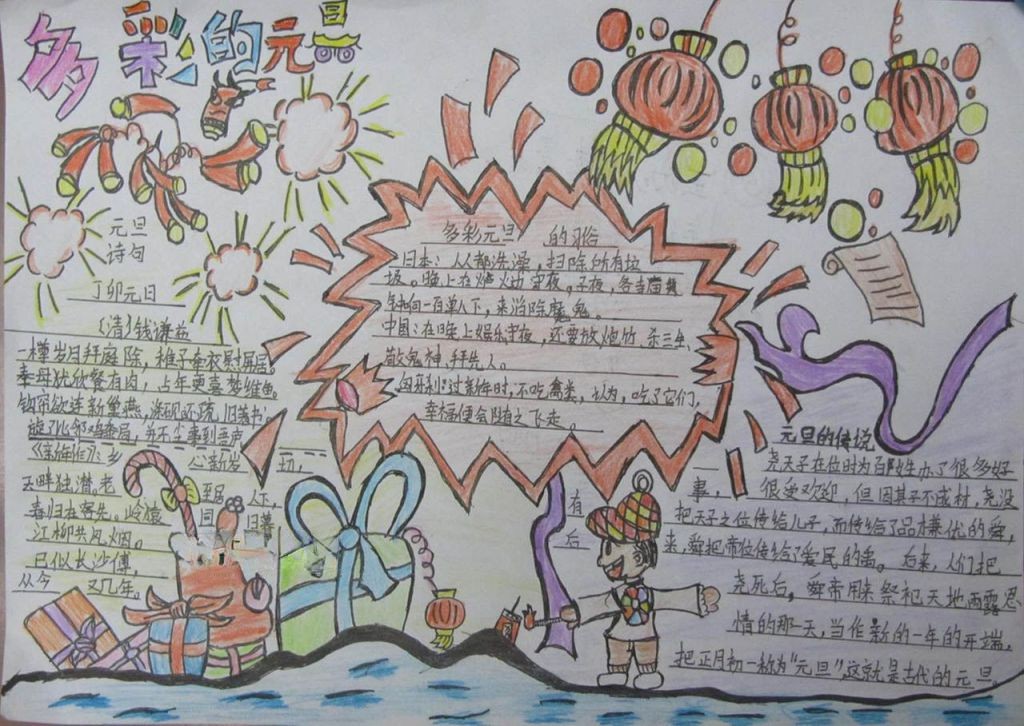 多彩的元旦
元旦
诗句
丁卯元日
(清)钱谦益
一樽岁日拜庭除,稚子牵衣慰屏居。
奉母犹欣餐有肉,占年更喜梦维鱼。
钩帘欲连新巢燕,涤砚还疏旧著书
旋了比邻鸡黍局,并不尘事到吾庐
《新年作》:乡 心新岁 切,
天畔独潸。老 至居 人下,
春归在客先。岭猿 同 旦暮
江柳共风烟。
已似长沙傅,
从今 又几年。
多彩元旦 的习俗
日本:人人都洗澡,扫除所有垃
圾。晚上在 守夜。子夜,各寺庙
钟响一百单八下,来消除魔鬼。
中国:在晚上娱乐守夜,还要放炮竹,杀三牛
敬鬼神,拜先人
匈牙利:过新年时,不吃禽类,以为,吃了它们,
幸福便会随之飞走。
元旦的传说
尧天子在位时为百姓办了很多好
事,很受欢迎,但因其子不成材,尧没
把天子之位传给儿子,而传给了品 优的舜,
来,舜把帝位传给了爱民的禹。后来,人们把
尧死后,舜帝用来祭祀天地雨露恩
情的那天,当作新的一年的开端,
把正月初一称为“元旦”,这就是古代的元旦。
有
后